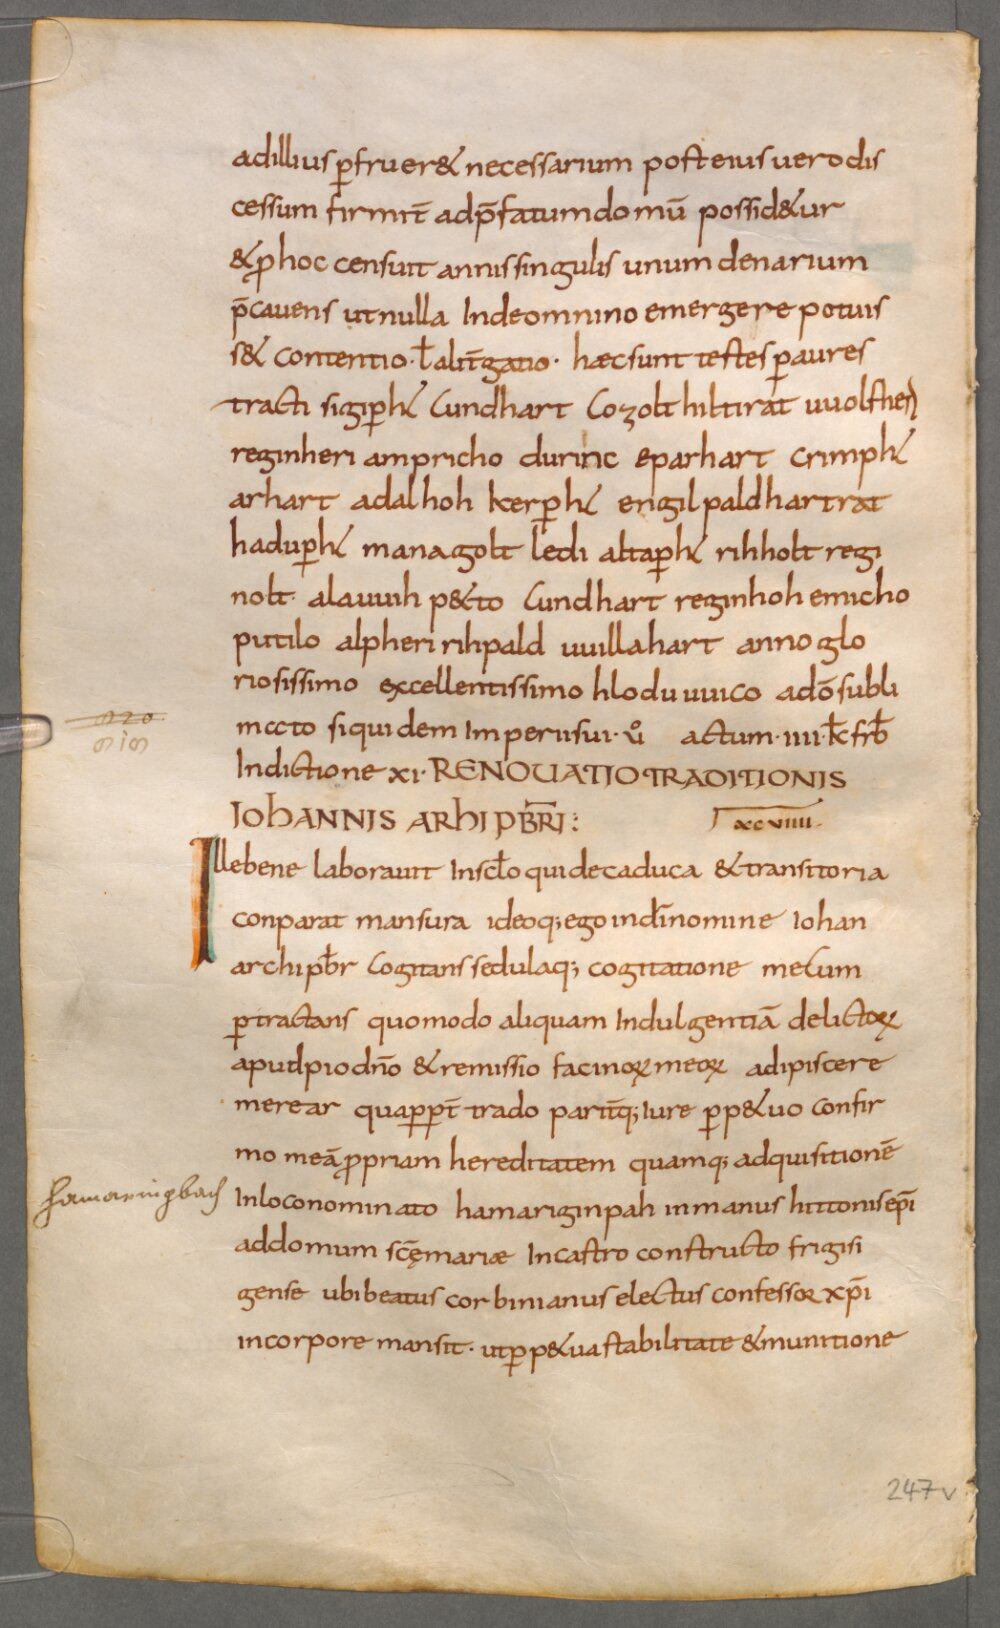 adillius ꝑfruer& necessarium post eius uero dis
cessum firmit̄ ad p̄fatum domū possid&ur
& ꝓ hoc censuit annis singulis unum denarium
p̄cauens ut nulla Inde omnino emergere potuis
s& contentio · ł alit̄gatio · hæc sunt testes ꝑ aures
tracti sigiꝑhꝉ Cundhart Cozolt hiltirat uuolfheri
reginheri ampricho durinc eparhart crimphꝉ
arhart adalhoh kerꝑhꝉ engilpald hartrat
haduꝑhꝉ managolt ledi altaꝑhꝉ rihholt regi
nolt · alauuih p&to Cundhart reginhoh emicho
putilo alpheri rihpald uuillahart anno glo
riosissimo excellentissimo hloduuuico adō subli
mccto siquidem Imperii sui · ů actum · IIII · k̄ feb̄
Indictione XI · RENOUATIO TRADITIONIS
IOHANNIS ARHIPB̄RI :
XCVIIII ·
Ille bene laborauit In scło qui de caduca & transitoria
conparat mansura ideoq; ego in dī nomine Iohan
archipƀr Cogitans sedulaq; cogitatione meCum
ꝑtractans quomodo aliquam Indulgentiā delictoꝝ
apud pio dn̄o & remissio facinoꝝ meoꝝ adipiscere
merear quaꝑꝑt̄ trado parit̄q; Iure ꝑp&uo confir
mo meā ꝓpriam hereditatem quamq; adquisitionē
hamaringbach
In loco nominato hamariginpah in manus hittonis ep̄i
ad domum sc̄ę mariæ In castro constructo frigisi
gense ubi beatus corbinianus electus confessor xp̄i
in corpore mansit · ut ꝑp&ua stabilitate & munitione
247v